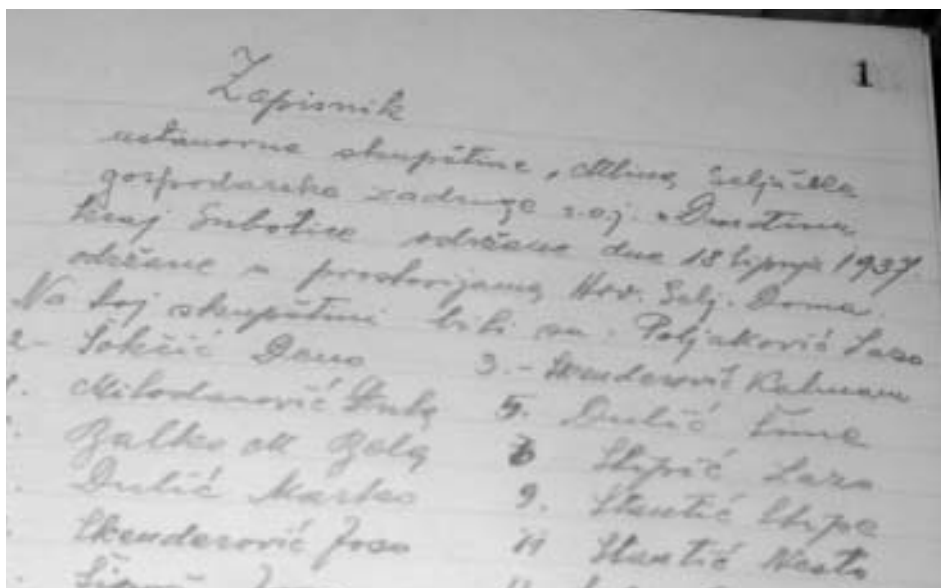 1
Zapisnik
ustanovne skupštine, Seljačke
gospodarske zadruge s.o.j. u Đurđinu
kraj Subotice održane dne 18 lipnja 1937
održane u prostorijama Hrv. Selj. Doma.
Na toj skupštini bili su: Poljaković Lazo
2.- Sokčić Deno 3.- Skenderović Kalman
Milodanović 5. Dulić Time
Balko M Bela Stipić Lazo
Dulić Marko 9. Stantić Stipe
Skenderović Joso 11 Stantić